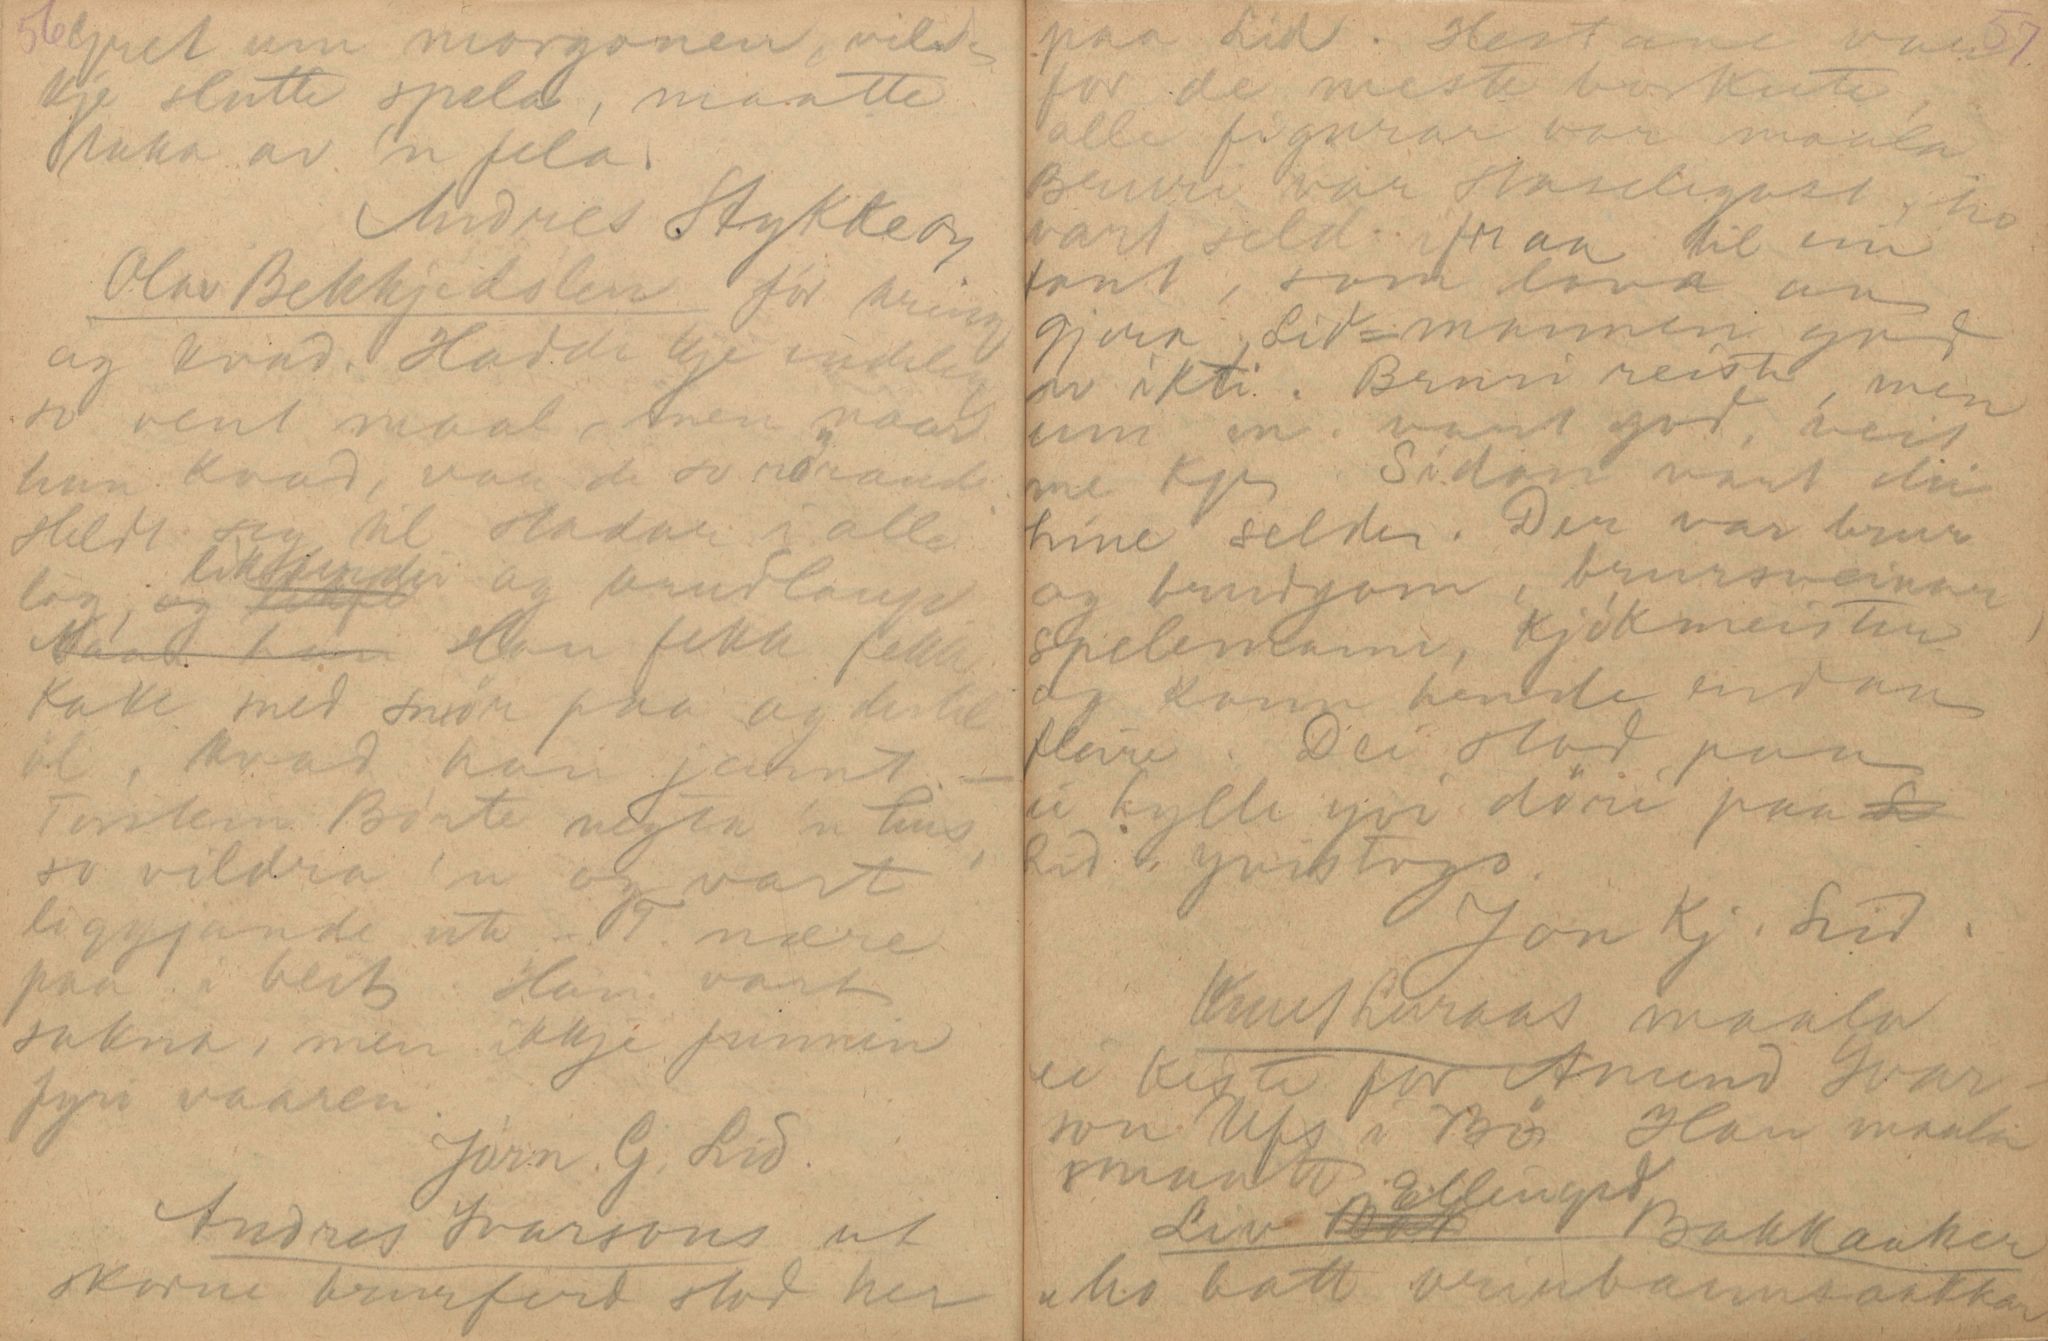 56
gret um morgonen, vilde
kje slutte spela, maatte
taka av 'n fela.
Andres Stykkeøy
Olav Bekkjedalen for kring
og kvad. Hadde kje endeleg
so vent maal, men naar
han kvad, var de so rörande.
Heldt seg til stadar i alle
lag, og likferder og brudlaup
Naar han Han fekk fekk
kake med smör paa og dertil
öl, kvad han jamt. —
Torstein Börte negta 'n hus,
so vildra 'n og vart
liggjande ute. T. nære
paa i beit. Han vart
sakna, men ikkje funnen
fyri vaaren.
Jörn. G. Lid.
Andres Ivarsons ut
skorne brurferd stod her
57
paa Lid. Hestane var
for de meste borkute,
alle figurar var maala
Bruri var staselegast, ho
vart seld ifraa til ein
fant, som lova aa
gjera Lid-mannen god
av ikti. Bruri reiste, men
um 'n vart god, veit
me kje. Sidan vart dei
hine selde. Der var brur
og brudgom, brursveinar
spelemann, kjökmeister
og kann hende endaa
fleire. Dei stod paa
ei hylle yvi döri paa L
Lid i yvistogo.
Jon Kj. Lid.
Knut Luraas maala
ei kiste for Amund Ivar-
son Ufs i Bö. Han maala
smaatt.
Liv Bak Ellingsd Bakkaaker
"ho batt